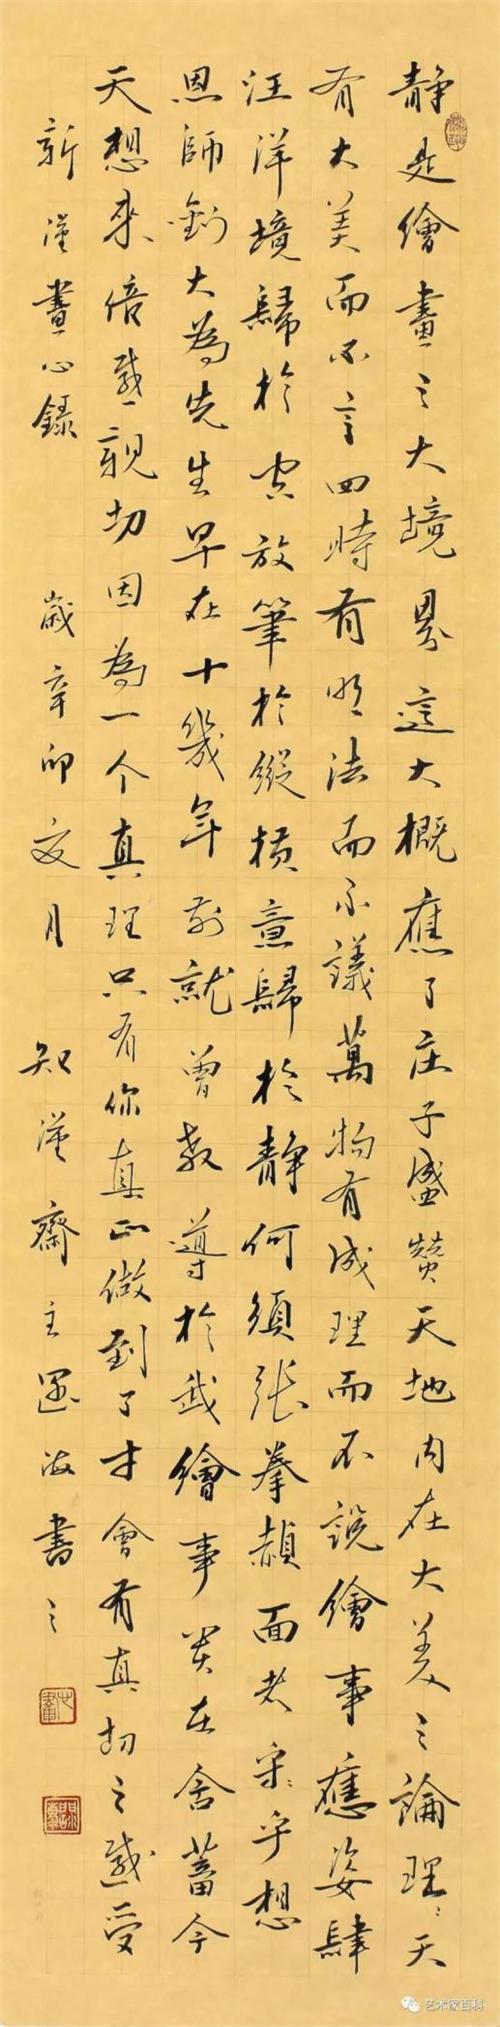 静是繪畫之大境界這大概應了庄子盛贊天地内在大美之論理：天
有大美而不言四時有明法而不議萬物有成理而不説繪事應姿肆
汪洋境歸於放筆於縱横意歸於静何須張拳頳面老宗：乎想
恩師劉大為先生早在十幾年前就曾教導於我繪事貴在含蓄今
天想来倍感親切因為一个真理只有你真正做到了才會有真切之感受
新漢畫心録 歲辛卯文月 知漢齋主海書之
艺术家百科